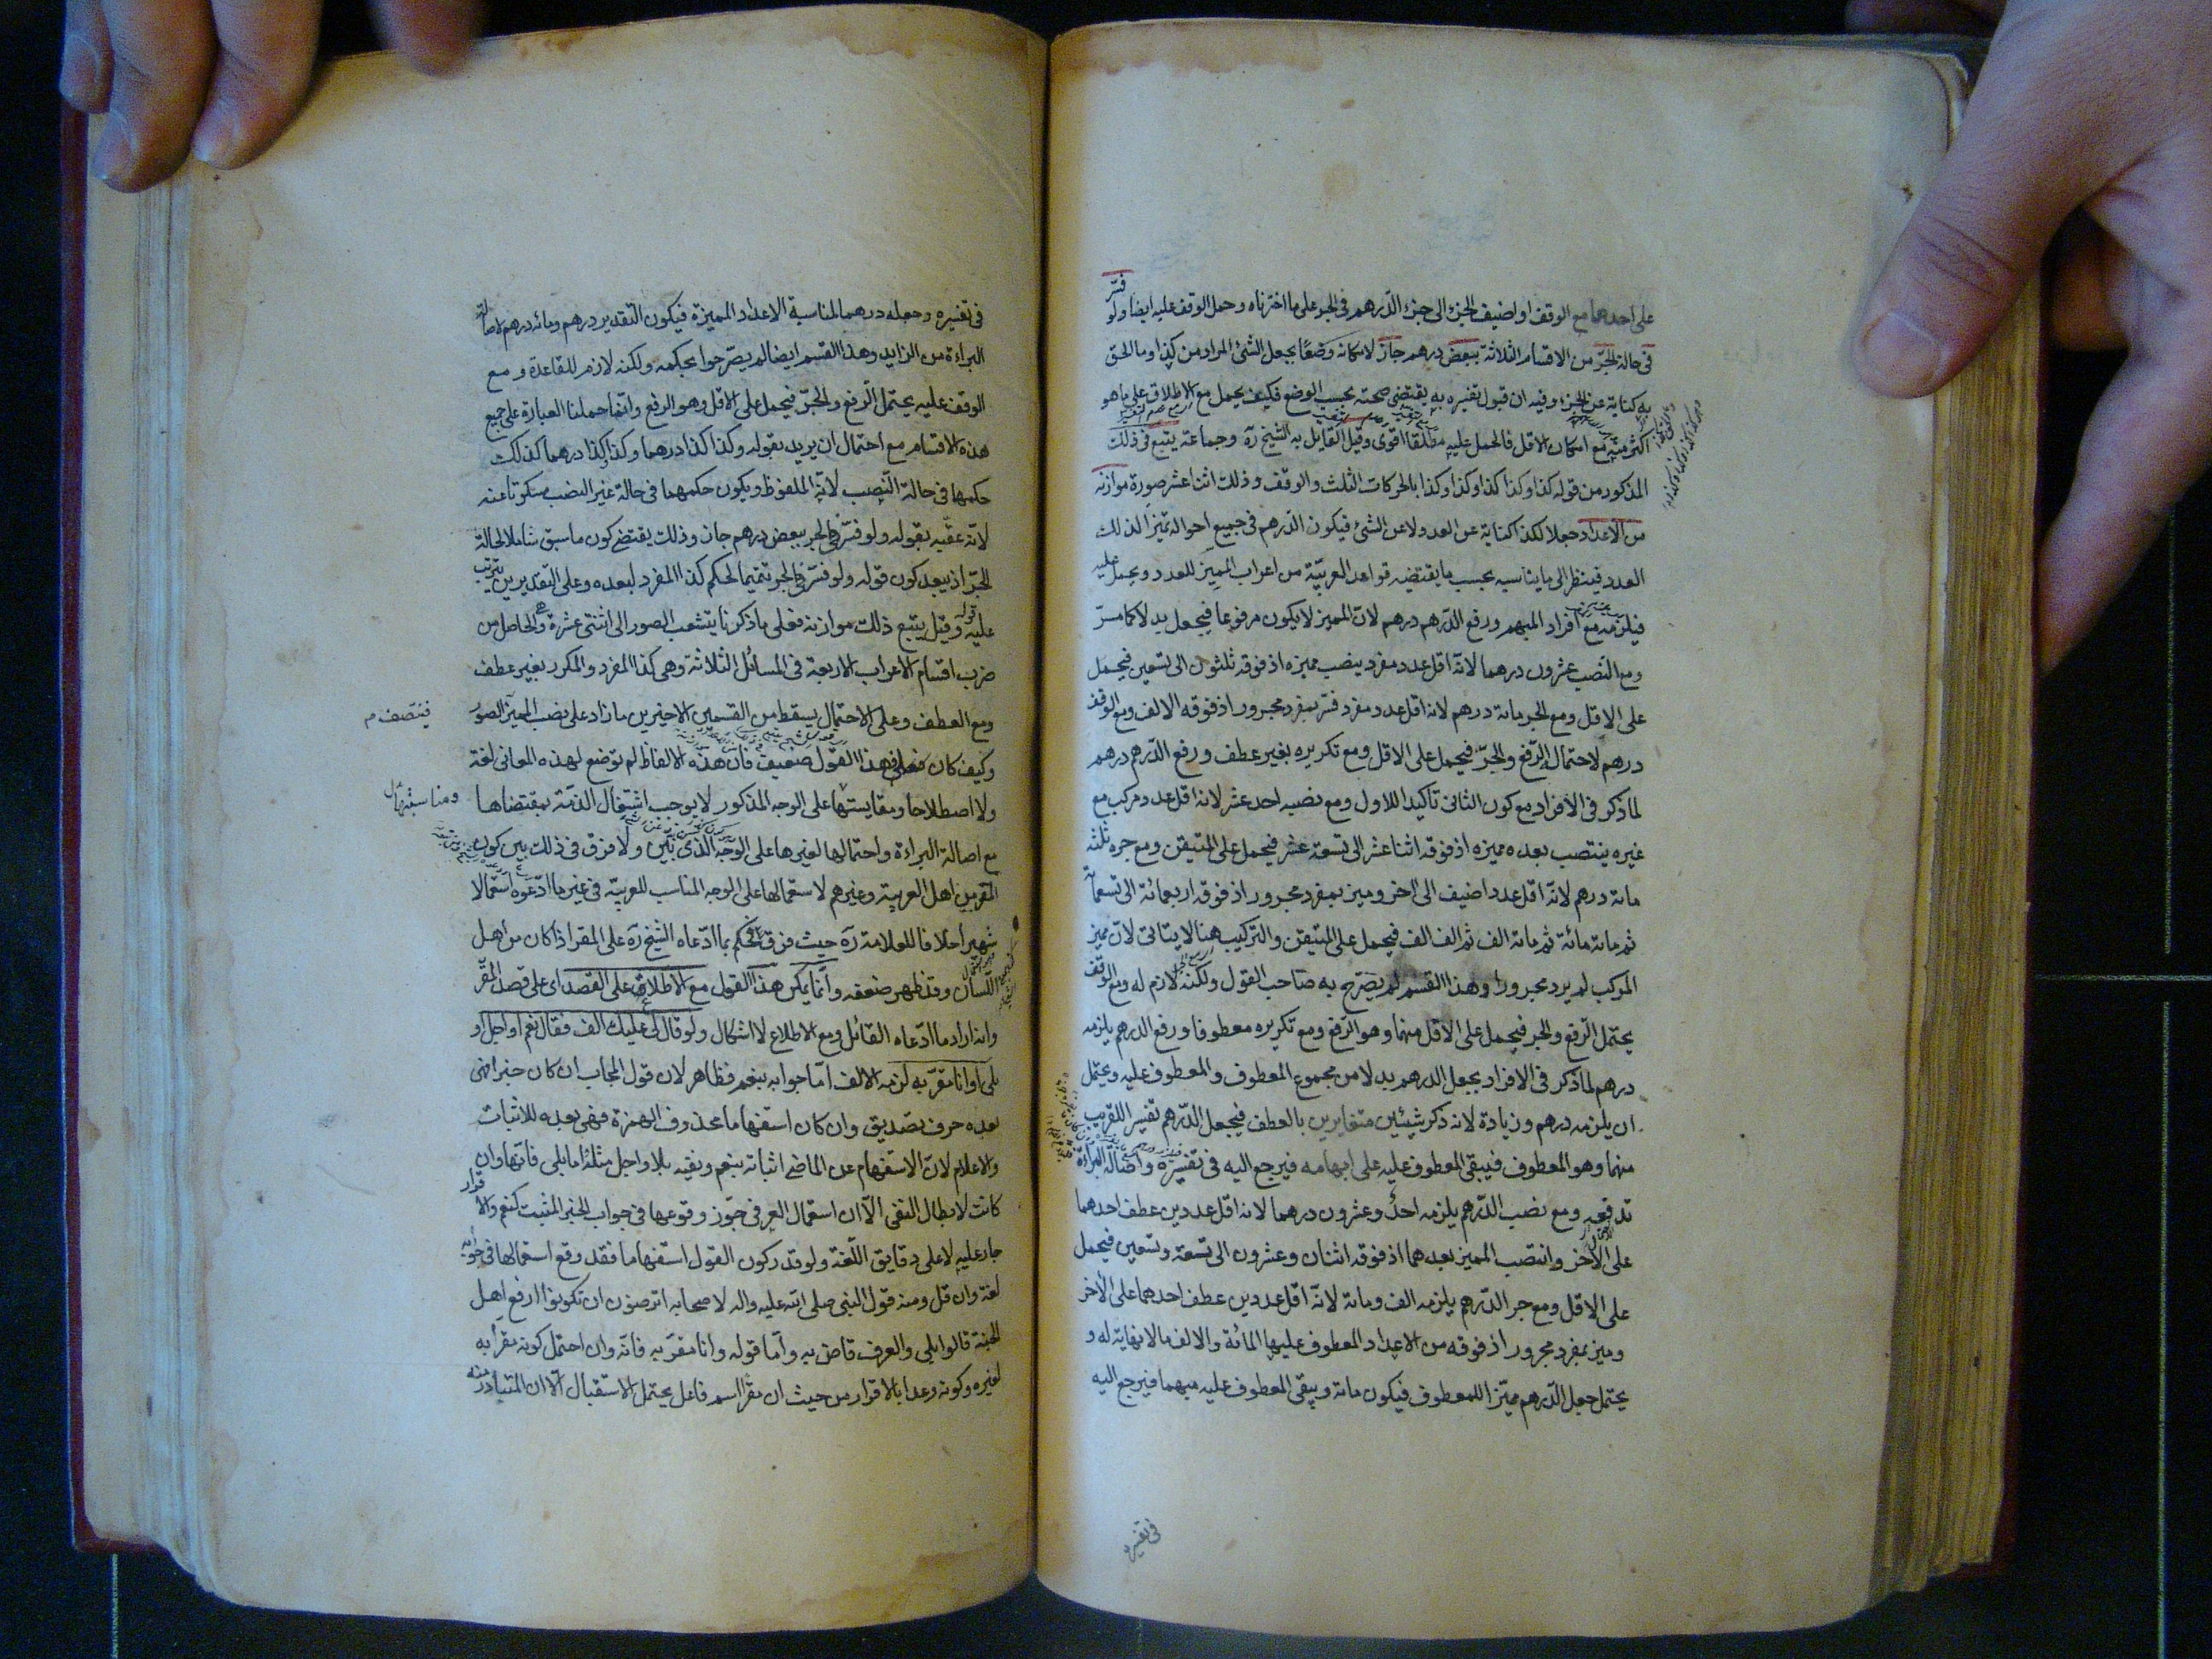 على احدهما مع الوقف او اضيف الجزء الى جزء الدرهم في الجر على ما اخترناه وحمل الوقف عليه ايضا ولو فسّر
في حالة الجرّ من الاقسام الثلاثة ببعض درهم جاز لامكانه وضعًا بجعل الشئ المراد من كذا وما الحق
به كناية عن الجزء وفيه ان قبول تفسيره به يقتضي صحته بحسب الوضع فكيف يحمل مع الاطلاق على ما هو
اكثر منه مع امكان الاقل فالحمل عليه مطلقا اقوى وقيل القايل به الشيخ ره وجماعة يتبع في ذلك
المذكور من قوله كذا وكذا كذا وكذا وكذا بالحركات الثلث والوقف وذلك اثنا عشر صورة موازنه
من الاعداد جعلا لكذا كناية عن العدد لا عن الشئ فيكون الدرهم في جميع احواله تميزا لذلك
العدد فينظر الى ما يناسبه بحسب ما يقتضيه قواعد العربيّة من اعراب المميز للعدد ويحمل عليه
فيلزمه مع افراد المبهم ورفع الدّرهم درهم لانّ المميز لا يكون مرفوعا فيجعل بدلا كما مرّ
ومع النصب عشرون درهما لانّه اقل عدد مفرد ينصب مميزه اذ فوقه ثلثون الى تسعين فيحمل
على الاقل ومع الجر مائة درهم لانه اقل عدد مفرد فسّر بمفرد مجرور اذ فوقه الالف ومع الوقف
درهم لاحتماله الرّفع والجرّ فيحمل على الاقل ومع تكريره بغير عطف ورفع الدّرهم درهم
لما ذكر في الافراد مع كون الثاني تأكيدا للاول ومع نصبه احد عشر لانه اقل عدد مركب مع
غيره ينتصب بعده مميزه اذ فوقه اثنا عشر الى تسعة عشر فيحمل على المتيقن ومع جره ثلثه
مائة درهم لانّه اقل عدد اضيف الى اخر وميز بمفرد مجرور اذ فوقه اربعمائة الى تسعمائة
ثم مائة مائة ثم مائة الف ثم الف الف فيحمل على المتيقن والتركيب هنا لا يتاتى لانّ مميز
المركب لم يرد مجرورا وهذا القسم لم يصرّح به صاحب القول ولكنه لازم له ومع الوقف
يحتمل الرّفع والجر فيحمل على الاقل منهما وهو الرّفع ومع تكريره معطوفا ورفع الدرهم يلزمه
درهم لما ذكر في الافراد بجعل الدرهم بدلا من مجموع المعطوف والمعطوف عليه ويحتمل
ان يلزمه درهم وزيادة لانه ذكر شيئين متغايرين بالعطف فيجعل الدّرهم تفسيرا للقريب
منهما وهو المعطوف فيبقى المعطوف عليه على ابهامه فيرجع اليه في تفسيره واصالة البراءة
تدفعه ومع نصب الدّرهم يلزمه احد وعشرون درهما لانه اقل عددين عطف احدهما
على الاخر وانتصب المميز بعدهما اذ فوقه اثنان وعشرون الى تسعة وتسعين فيحمل
على الاقل ومع جر الدّرهم يلزمه الف ومائة لانّه اقل عددين عطف احدهما على الاخر
وميز بمفرد مجرور اذ فوقه من الاعداد المعطوف عليها المائة والالف ما لا نهاية له و
يحتمل جعل الدّرهم مميّزا للمعطوف فيكون مائة ويبقى المعطوف عليه مبهما فيرجع اليه
في تفسيره
في تفسيره وجعله درهما لمناسبة الاعداد المميزة فيكون التقدير درهم ومائه درهم لاصالة
البراءة من الزايد وهذا القسم ايضا لم يصرّحوا بحكمه ولكنه لازم للقاعدة ومع
الوقف عليه يحتمل الرّفع والجرّ فيحمل على الاقل وهو الرفع وانّما حملنا العبارة على جميع
هذه الاقسام مع احتمال ان يريد بقوله وكذا كذا درهما وكذا وكذا درهما كذلك
حكمها في حالة النّصب لانّه الملفوظ ويكون حكمهما في حالة غير النصب مسكوتا عنه
لانّه عقّبه بقوله ولو فسّر في الجر ببعض درهم جاز وذلك يقتضي كون ما سبق شاملا لحالة
الجرّ اذ يبعد كون قوله ولو فسّر في الجر تتميما لحكم كذا المفرد لبعده وعلى التقديرين يترتب
عليه قوله وقيل يتبع ذلك موازنه فعلى ما ذكرنا يتشعب الصور الى اثنتي عشرة وهي الحاصل من
ضرب اقسام الاعراب الاربعة في المسائل الثلاثة وهي كذا المفرد والمكرر بغير عطف
ومع العطف وعلى الاحتمال يسقط من القسمين الاخيرين ما زاد على نصب المميز الصور فينتصف م
وكيف كان فهذا القول ضعيف فان هذه الالفاظ لم توضع لهذه المعاني لغة
ولا اصطلاحا ومقايستها على الوجه المذكور لا يوجب اشتغال الذمّة بمقتضاها ومناسبتها
مع اصالة البراءة واحتمالها لغيرها على الوجه الذي بيّن ولا فرق في ذلك بين كون
المقر من اهل العربية وغيرهم لاستعمالها على الوجه المناسب للعربيّة في غير ما ادّعوه استعمالا
شهيرا خلافا للعلامة ره حيث فرق وحكم بما ادّعاه الشيخ ره على المقر اذا كان من اهل
اللّسان وقد ظهر ضعفه وانّما يمكن هذا القول مع الاطلاع على القصد اى على قصد المقر
وانه اراد ما ادّعاه القائل ومع الاطلاع لا اشكال ولو قال لى عليك الف فقال نعم او اجل او
بلى او انا مقرّ به لزمه الالف امّا جوابه بنعم فظاهر لان قول المجاب ان كان خبرا فهى
بعده حرف تصديق وان كان استفهاما محذوف الهمزة فهي بعده للاثبات
والاعلام لانّ الاستفهام عن الماضي اثباته بنعم ونفيه بلا واجل مثله اما بلى فانّها وان
كانت لابطال النفى الّا ان استعمال العرفي جوّز وقوعها في جواب الخبر المثبت كنعم والاقرار
جار عليه لا على دقايق اللّغة ولو قدر كون القول استفهاما فقد وقع استعمالها في جوابه
لغة وان قل ومنه قول النبي صلى الله عليه واله لاصحابه اترضون ان تكونوا ارفع اهل
الجنة قالوا بلى والعرف قاض به وامّا قوله وانا مقرّ به فانّه وان احتمل كونه مقرا به
لغيره وكونه وعدا بالاقرار من حيث ان مقرا اسم فاعل يحتمل الاستقبال الّا ان المتبادر منه